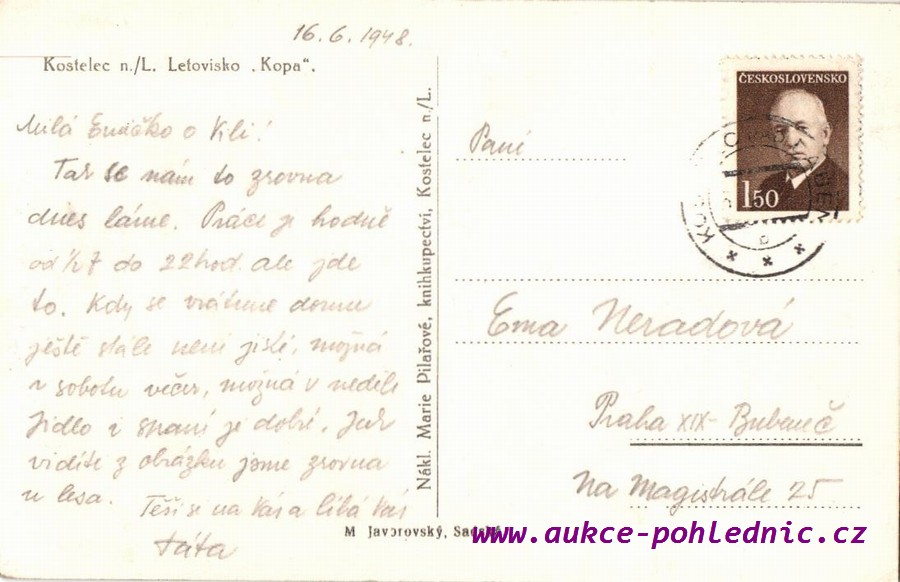 16.6.1948.
Kostelec n./L. Letovisko „Kopa“.
Milá Emičko o Kli!
Tak se nám to zrovna
dnes láme. Práce je hodně
od ½7 do 22hod. ale jde
to. Kdy se vrátíme domu
ještě stále není jisté, možná
v sobotu večer, možná v neděli
Jídlo i spaní je dobré. Jak
vidíte z obrázku jsme zrovna
u lesa.
Těší se na Vás a líbá Vás
táta
Nákl. Marie Pilařové, knihkupectví, Kostelec n./L.
M Javorovský, Sadská
ČESKOSLOVENSKO
1.50
Paní
Ema Neradová
Praha XIX-Bubeneč
Na Magistrále 25
www.aukce-pohlednic.cz